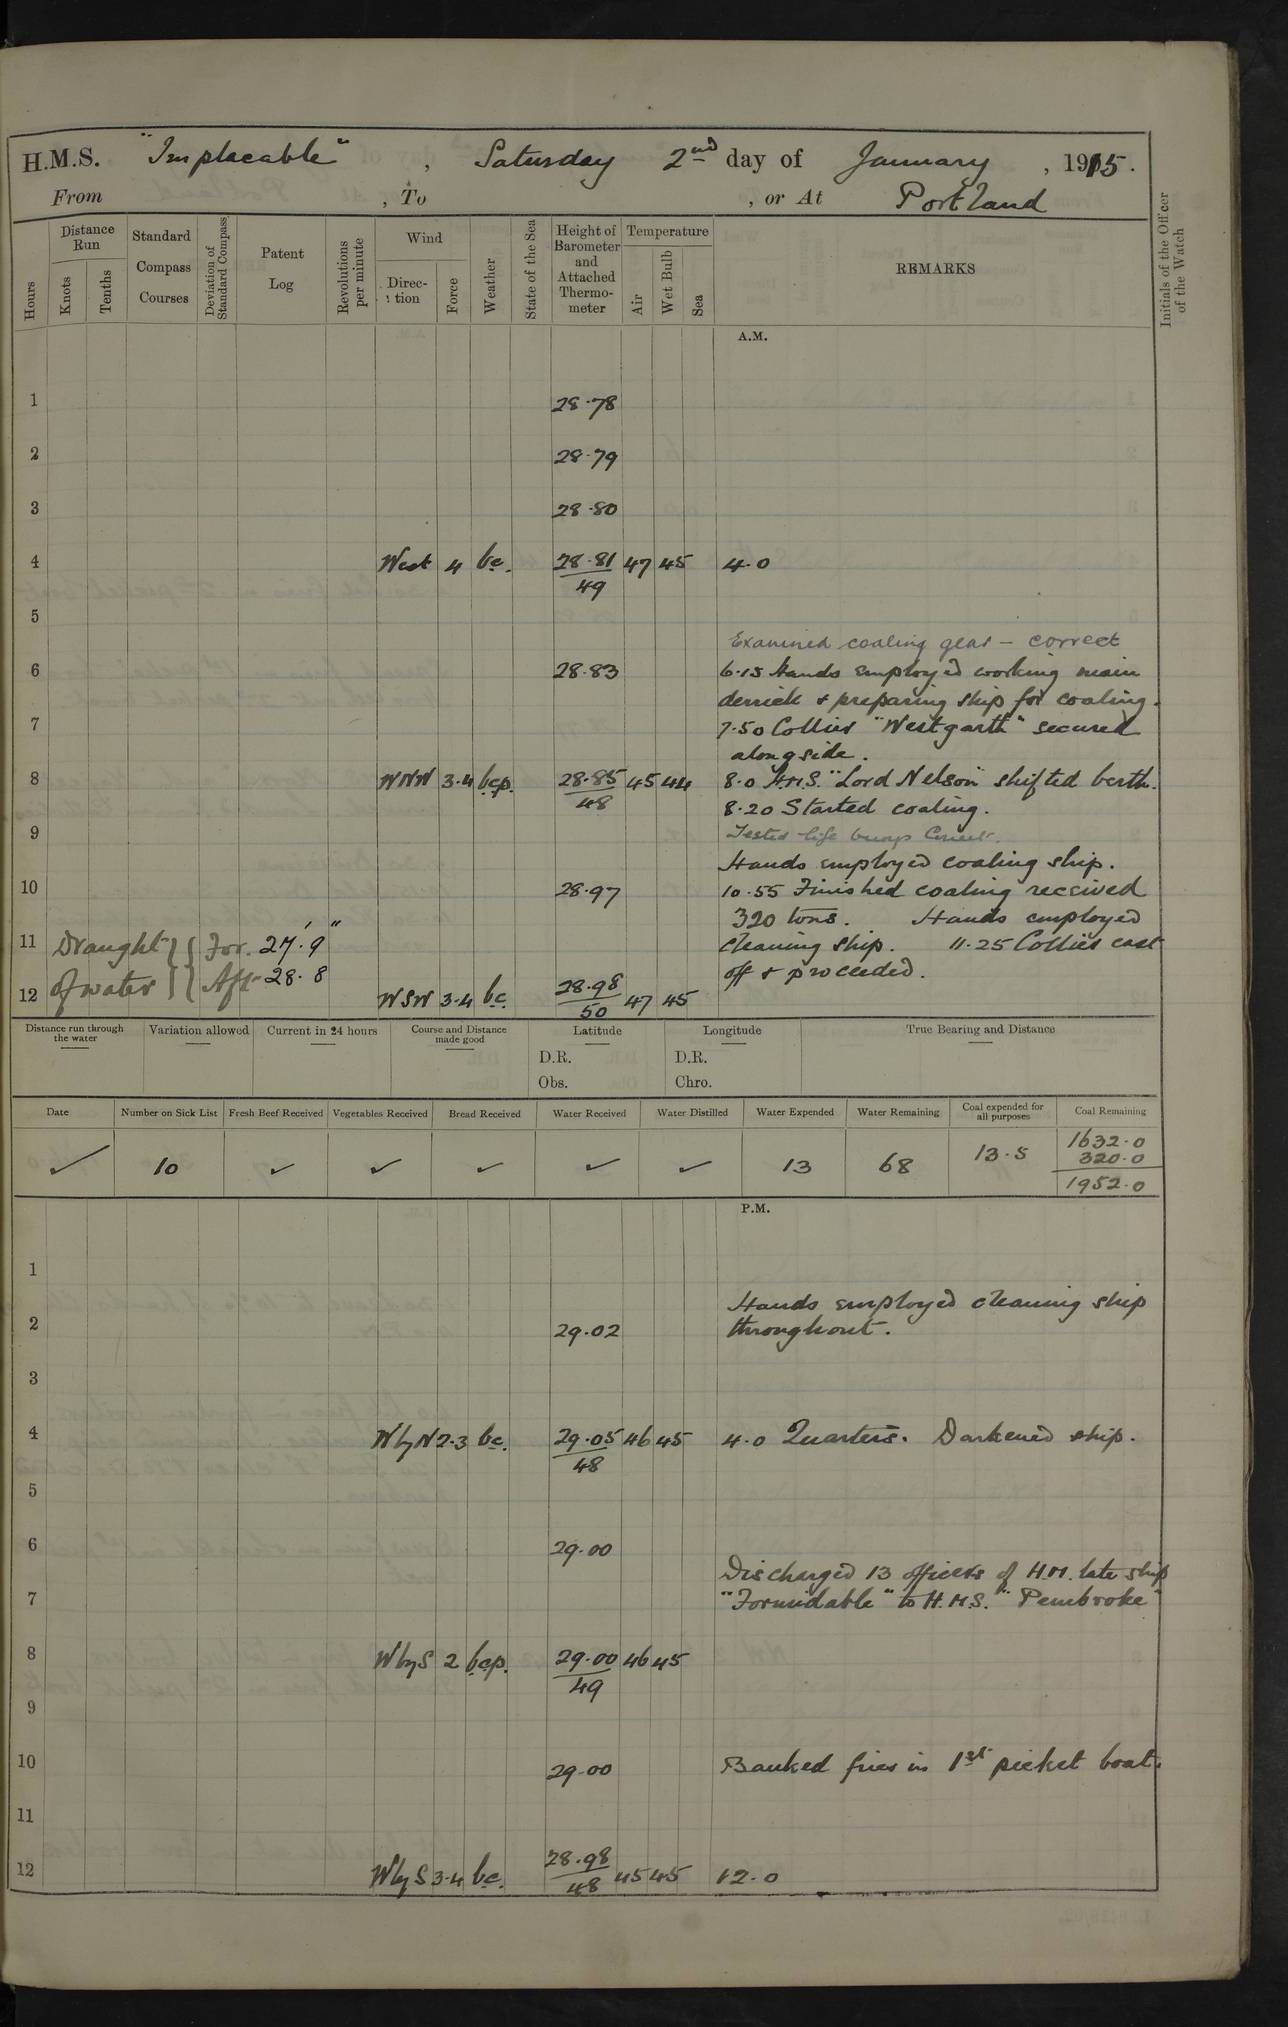 H.M.S. "Implacable", Saturday 2nd day of January, 1915.
From , To , or At Portland
Hours
Distance Run
Knots
Tenths
Standard Compass Courses
Deviation of Standard Compass
Patent Log
Revolutions per minute
Wind
Direction
Force
Weather
State of the Sea
Height of Barometer and Attached Thermometer
Temperature
Air
Wet Bulb
Sea
REMARKS
Initials of the Officer of the Watch
A.M.
1 28.78
2 28.79
3 28.80
4 West 4 bc. 28.81 47 45 4.0
49
5
Examined coaling gear - correct
6 28.83 6.15 Hands employed working main
derrick & preparing ship for coaling.
7 7.50 Collier "Westgarth" secured
alongside.
8 WNW 3.4 bcp. 28.85 45 44 8.0 H.M.S. "Lord Nelson" shifted berth.
48 8.20 Started coaling.
9 Tested life buoys Correct.
Hands employed coaling ship.
10 28.97 10.55 Finished coaling received
320 tons. Hands employed
11 Draught For. 27'.9" cleaning ship. 11.25 Collier cast
of water Aft 28.8 off & proceeded.
12 WSW 3.4 bc 28.98 47 45
50
Distance run through the water
Variation allowed
Current in 24 hours
Course and Distance made good
Latitude
D.R.
Obs.
Longitude
D.R.
Chro.
True Bearing and Distance
Date
Number on Sick List
Fresh Beef Received
Vegetables Received
Bread Received
Water Received
Water Distilled
Water Expended
Water Remaining
Coal expended for all purposes
Coal Remaining
✓ 10 ✓ ✓ ✓ ✓ ✓ 13 68 13.5 1632.0
320.0
1952.0
P.M.
1
Hands employed cleaning ship
2 29.02 throughout.
3
4 WbyN 2-3 bc. 29.05 46 45 4.0 Quarters. Darkened ship.
48
5
6 29.00
Discharged 13 officers of H.M. late ship
7 "Formidable" to H.M.S. "Pembroke"
8 WbyS 2 bcp. 29.00 46 45
49
9
10 29.00 Banked fires in 1st picket boat.
11
12 WbyS 3.4 bc. 28.98 45 45 12.0
48